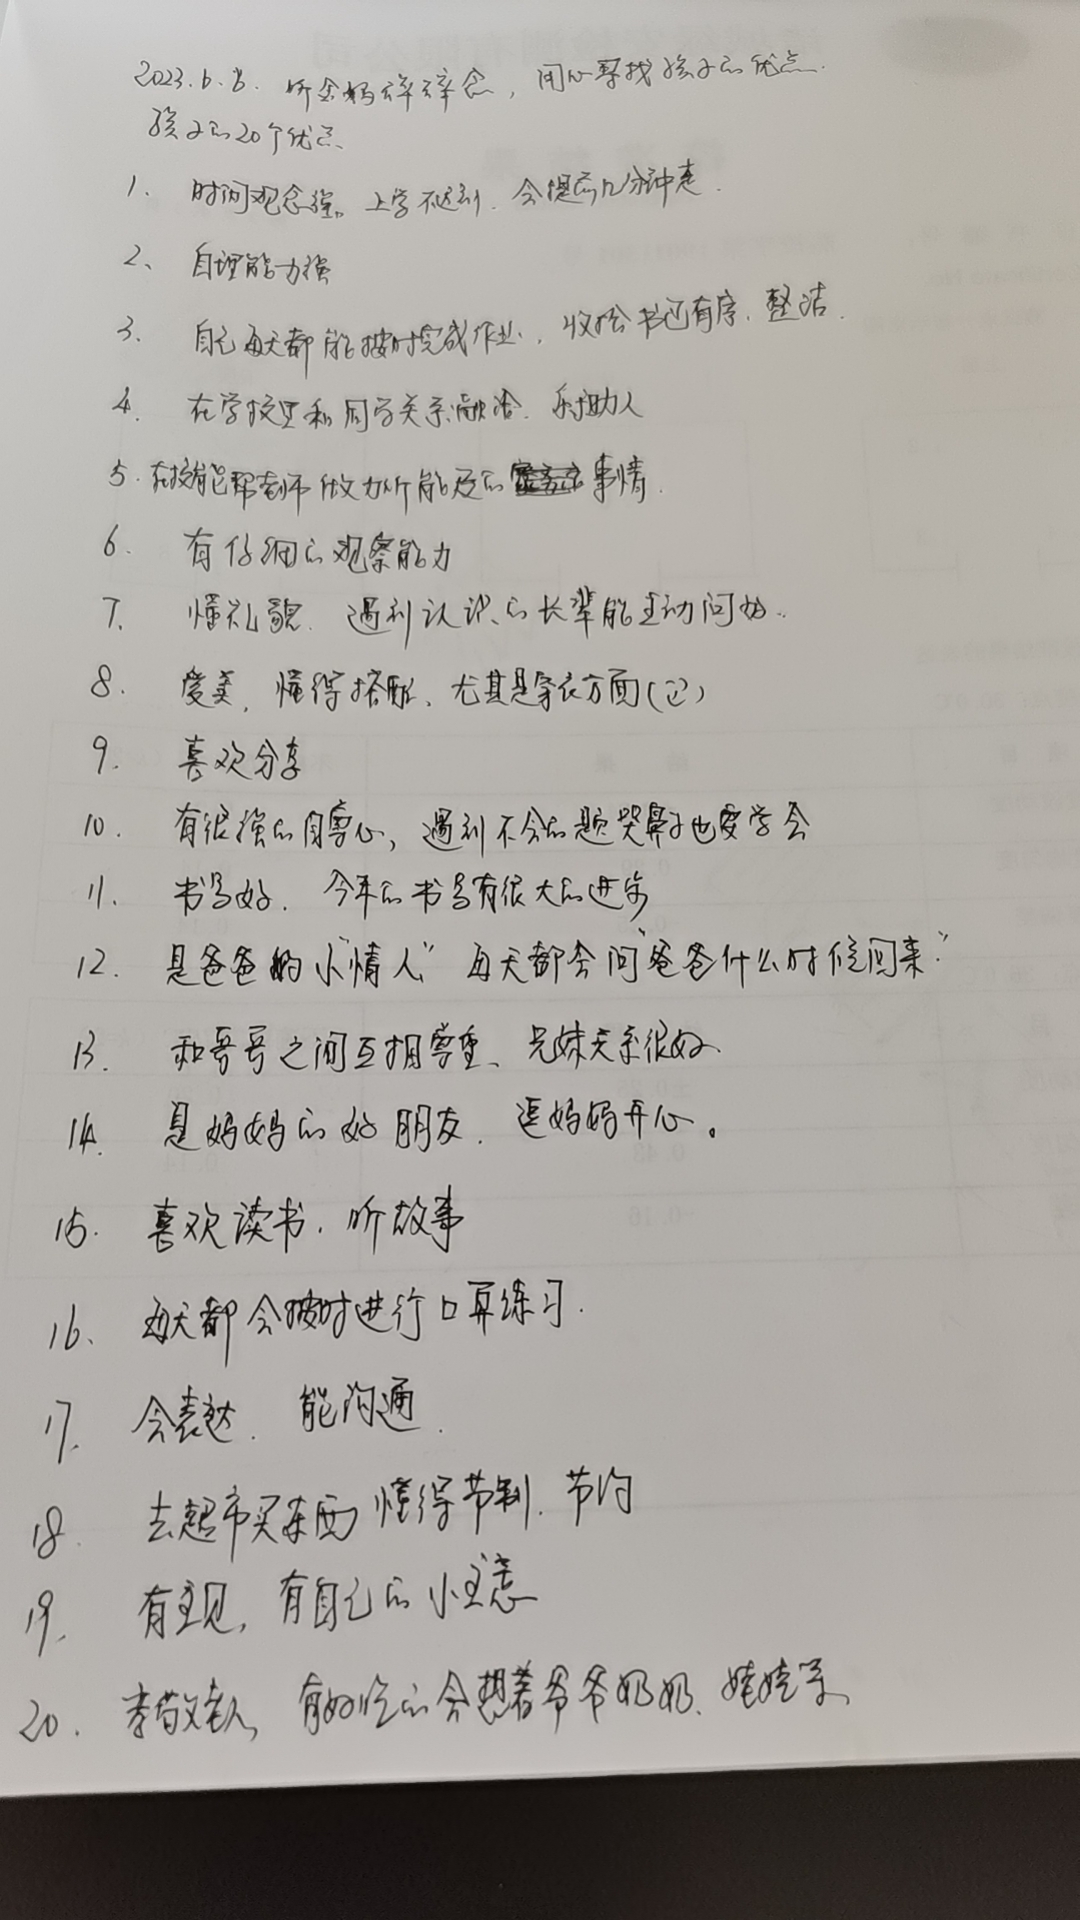 2023.6.8. 听金妈碎碎念，用心寻找孩子的优点.
孩子的20个优点、
1. 时间观念强。上学不迟到. 会提前几分钟走.
2、 自理能力强
3. 自己每天都能按时完成作业. 收拾书包有序. 整洁.
4. 在学校里和同学关系融洽. 乐助人
5. 在校能帮老师做力所能及的事情.
6. 有仔细的观察能力
7. 懂礼貌. 遇到认识的长辈能主动问好.
8. 爱美, 懂得搭配、尤其是穿衣方面
9. 喜欢分享
10. 有很强的自尊心, 遇到不会的题哭鼻子也要学会
11. 书写好. 今年的书写有很大的进步
12. 是爸爸的小“情人” 每天都会问“爸爸什么时候回来”
13. 和哥哥之间互相尊重、兄妹关系很好.
14. 是妈妈的好朋友. 逗妈妈开心。
15. 喜欢读书. 听故事
16. 每天都会按时进行口算练习.
17. 会表达. 能沟通.
18. 去超市买东西懂得节制. 节约
19. 有主见, 有自己的小主意
20. 孝敬老人, 有好吃的会想着爷爷奶奶、姥姥等